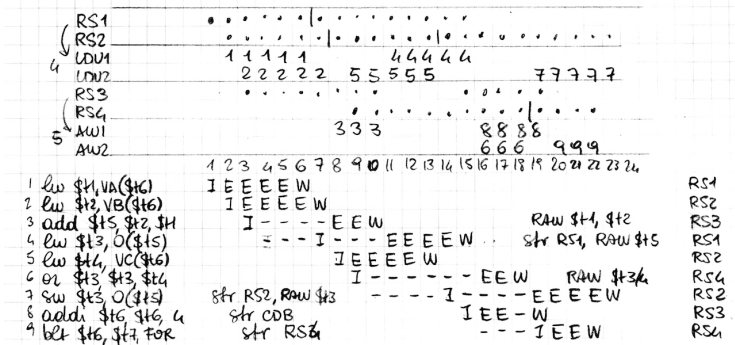 RS1
RS2
4 LDU1 1 1 1 1 1 4 4 4 4 4
LDU2 2 2 2 2 2 2 5 5 5 5 5
RS3
RS4
5 ALU1 3 3 3 8 8 8 8
ALU2 6 6 6 9 9 9
7 7 7 7 7
1 2 3 4 5 6 7 8 9 10 11 12 13 14 15 16 17 18 19 20 21 22 23 24
1 lw $t1, VA($t6) I E E E E W RS1
2 lw $t2, VB($t6) I E E E E W RS2
3 add $t5, $t2, $t1 I - - - - E E W RAW $t1, $t2 RS3
4 lw $t3, 0($t5) - - - I - - - E E E E W str RS1, RAW $t5 RS1
5 lw $t4, VC($t6) I E E E E W RS2
6 or $t3, $t3, $t4 I - - - - - - E E W RAW $t3/4 RS4
7 sw $t3, 0($t5) str RS2, RAW $t3 - - - - I - - - - E E E E W RS2
8 addi $t6, $t6, 4 str CDB I E E - W RS3
9 blt $t6, $t7, FOR str RS4 - - - I E E W RS4